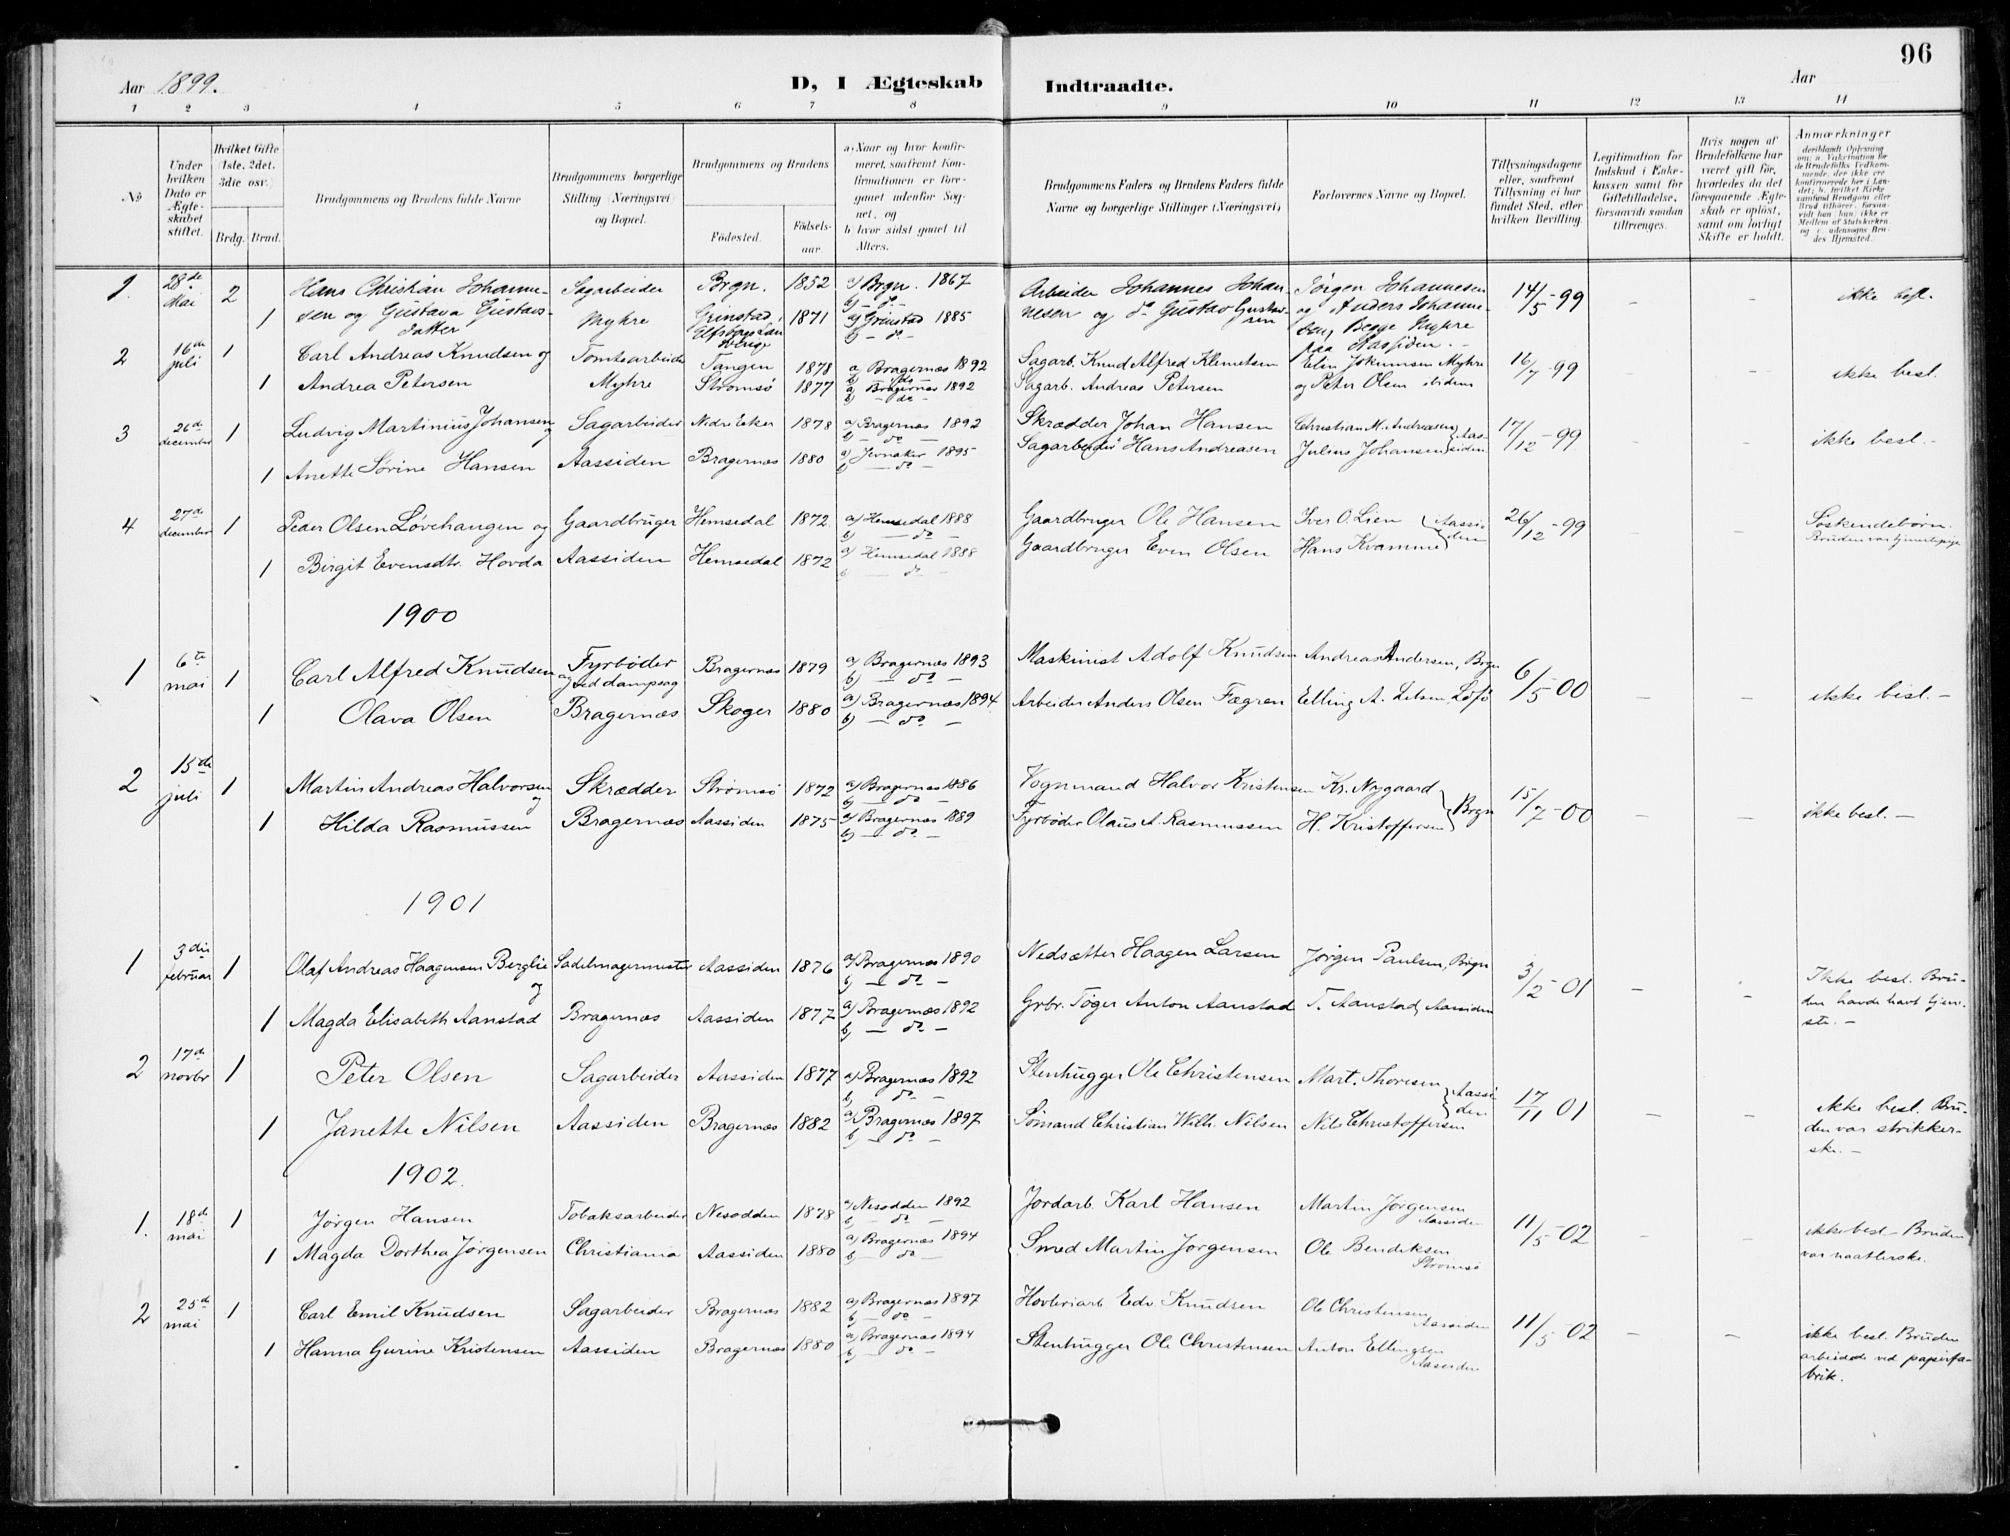 96
Aar 1899.
D, I Ægteskab Indtraadte.
Aar
1 2 3 4 5 6 7 8 9 10 11 12 13 14
No
Under hvilken Dato er Ægteskabet stiftet.
Hvilket Gifte (1ste, 2det, 3die osv.)
Brdg. Brud.
Brudgommens og Brudens fulde Navne
Brudgommens borgerlige Stilling (Næringsvei) og Bopæl.
Brudgommens og Brudens
Fødested.
Fødselsaar.
a. Naar og hvor konfirmeret, saafremt Konfirmationen er foregaaet udenfor Sognet, og
b. hvor sidst gaaet til Alters.
Brudgommens Faders og Brudens Faders fulde Navne og borgerlige Stillinger (Næringsvei)
Forlovernes Navne og Bopæl.
Tillysningsdagene eller, saafremt Tillysning ei har fundet Sted, efter hvilken Bevilling.
Legitimation for Indskud i Enkekassen samt for Giftetilladelse, forsaavidt saadan tiltrænges.
Hvis nogen af Brudefolkene har været gift før, hvorledes da det foregaaende Ægteskab er opløst, samt om lovligt Skifte er holdt.
Anmærkninger
1. 28de Mai 2 Hans Christian Johannesen og Sagarbeider Brgn. 1852 a) Brgn. 1867 b) – do – Arbeider Johannes Johannesen Jørgen Johannesen 14/5–99 – – ikke besl.
1 Gustava Gustavsdatter Myhre Grinstad 1871 a) Grinstad 1885 b) – do – og do Gustav Gustavsen og Anders Johannesen, Begge Myhre paa Aassiden.–
2 16de juli 1 Carl Andreas Knudsen og Tomtearbeider Tangen 1878 a Bragernæs 1892 b – do – Sagarb. Knud Alfred Klemetsen Elin Jokumsen Myhre 16/7–99 – – ikke besl.
1 Andrea Petersen Myhre Strømsø 1877 a) Bragernæs 1892 b) – do – Sagarb. Andreas Petersen og Peter Olsen ibidem
3 26de december 1 Ludvig Martinius Johansen og Sagarbeider Nedre Eker 1878 a) Bragernæs 1892 b) – do – Skrædder Johan Hansen Christian M. Andreasen 17/12–99 – – ikke besl.–
1 Anette Sørine Hansen Aassiden Bragernæs 1880 a) Jevnaker 1895 b) – do – Sagarbeider Hans Andreasen Julius Johansen Aassiden
4 27de december 1 Peder Olsen Løvehaugen og Gaardbruger Hemsedal 1872 a) Hemsedal 1888 b) – do Gaardbruger Ole Hansen Iver O. Lien 26/12–99 – – Søskendebørn.
1 Birgit Evensdtr. Hovda Aassiden Hemsedal 1872 a) Hemsedal 1888 b – do – Gaardbruger Even Olsen Hans Kvamme Aassiden Bruden var tjenestepige
1900
1 6te mai 1 Carl Alfred Knudsen og Fyrbøder ved dampsag Bragernæs 1879 a) Bragernæs 1893 b) – do – Maskinist Adolf Knudsen Andreas Andersen, Brgn 6/5–00 – – ikke besl.–
1 Olava Olsen Bragernæs Skoger 1880 a) Bragernæs 1894 b) – do – Arbeider Anders Olsen Fægren Elling A.
2 15de juli 1 Martin Andreas Halvorsen og Skrædder Strømsø 1872 a) Bragernæs 1886 b) – do – Vognmand Halvor Kristensen Kr. Nygaard 15/7–00 – – ikke besl.–
1 Hilda Rasmussen Bragernæs Aassiden 1875 a) Bragernæs 1889 b) – do – Fyrbøder Olaus A. Rasmussen H. Kristoffersen Brgn
1901
1 3die februar 1 Olaf Andreas Haagensen Berglie og Sadelmagermester Aassiden 1876 a) Bragernæs 1890 b) – do – Nedsætter Haagen Larsen Jørgen Paulsen, Brgn 3/2–01 – – Ikke besl. Bruden havde havt tjeneste.–
1 Magda Elisabeth Aanstad Bragernæs Aassiden 1877 a) Bragernæs 1892 b) – do – Grbr. Tøger Anton Aanstad T. Aanstad, Aassiden
2 17de novbr 1 Peter Olsen Sagarbeider Aassiden 1877 a) Bragernæs 1892 b) do – Stenhugger Ole Christensen Mart. Thoresen 17/11 01 – – ikke besl. Bruden var strikkerske.–
1 Janette Nilsen Aassiden Bragernæs 1882 a) Bragernæs 1897 b) – do – Sømand Christian Wilh. Nilsen Nils Christoffersen Aassiden
1902.
1. 18de mai 1 Jørgen Hansen Tobaksarbeider Nesodden 1878 a) Nesodden 1892 b) – do – Jordarb. Karl Hansen Martin Jørgensen Aassiden 11/5–02 – – ikke besl. Bruden var naatlerske.
1 Magda Dorthea Jørgensen Christiania Aassiden 1880 a) Bragernæs 1894 b) – do – Smed Martin Jørgensen Ole Bendiksen Strømsø
2 25de mai 1 Carl Emil Knudsen Sagarbeider Bragernæs 1882 a) Bragernæs 1897 b) – do – Høvleriarb. Edv. Knudsen Ole Christensen Aassiden 11/5–02 – – ikke besl. Bruden arbeidede ved papirfabrik.
1 Hanna Gurine Kristensen Aassiden Bragernæs 1880 a) Bragernæs 1894 b – do – Stenhugger Ole Christensen Anton Ellingsen Aassiden